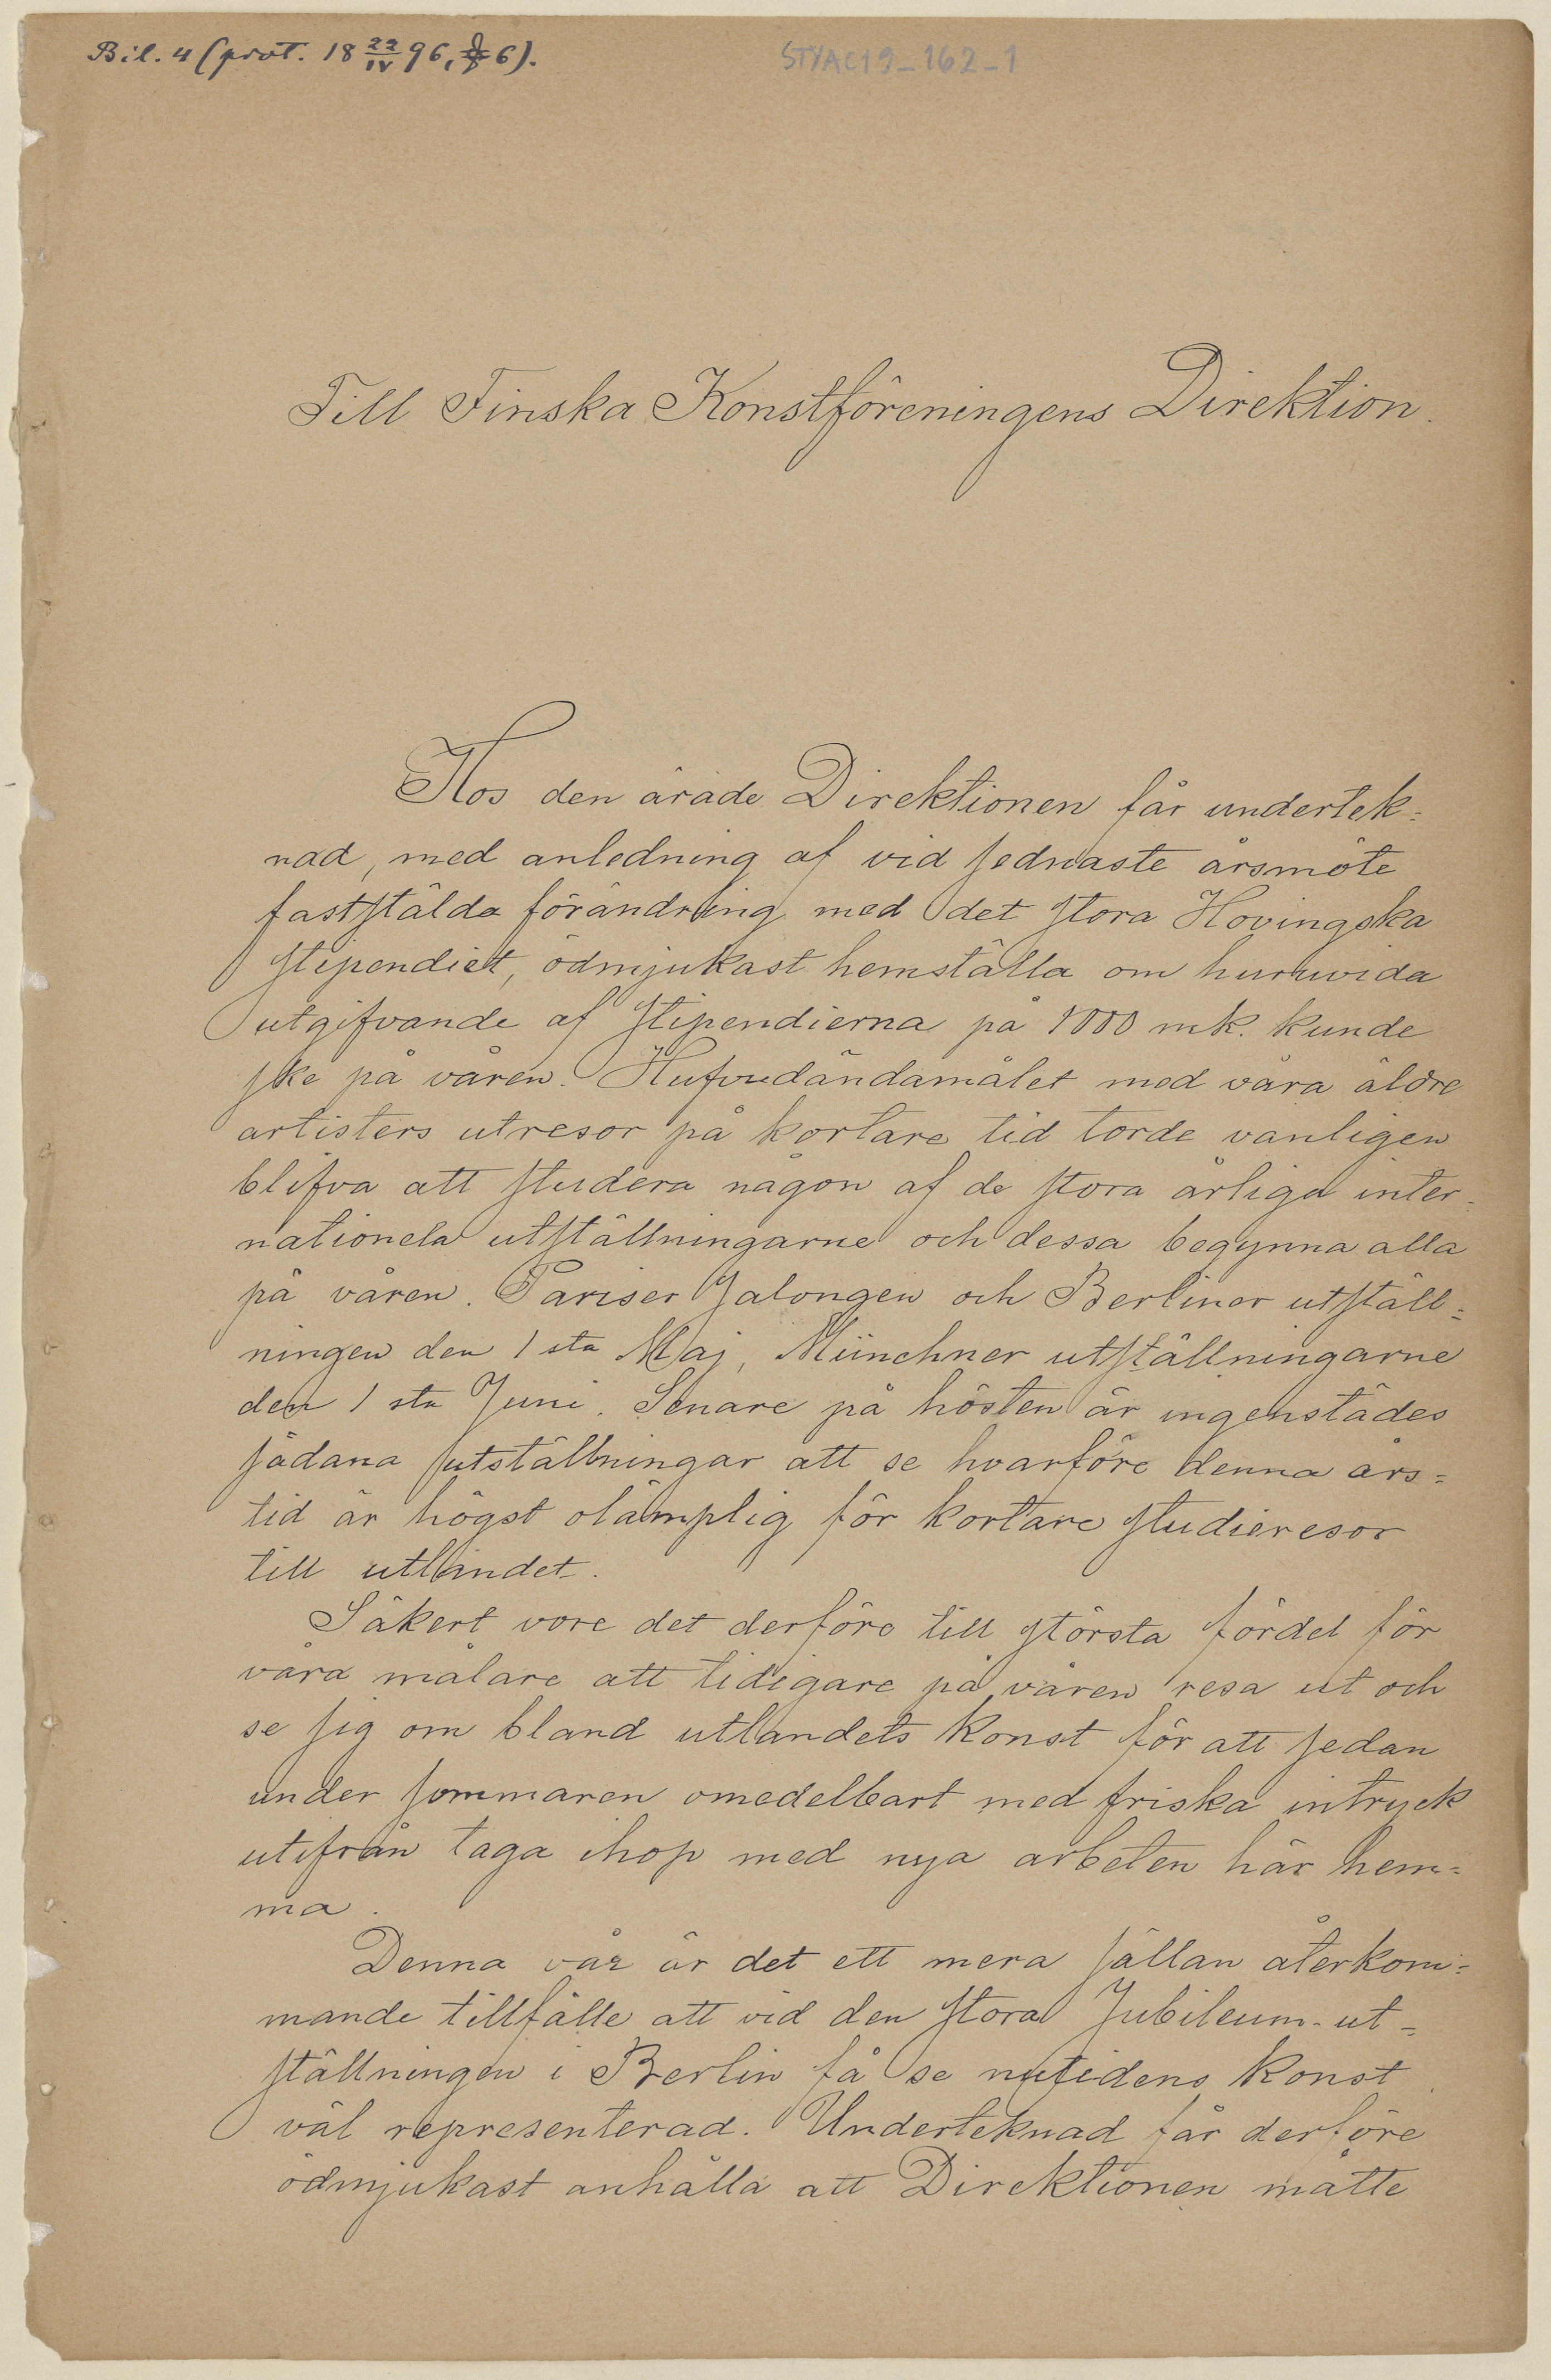 Bil. 4 (prot. 18 22/IV 96, § 6).
STYAC19_162_1
Till Finska Konstföreningens Direktion.
Hos den ärade Direktionen får undertek=
nad, med anledning af vid sednaste årsmöte
fastställda förändring med det stora Hovingska
stipendiet, ödmjukast hemställa om huruvida
utgifvande af stipendierna på 1000 mk. kunde
ske på våren. Hufvudändamålet med våra äldre
artisters utresor på kortare tid torde vanligen
blifva att studera någon af de stora årliga inter=
nationela utställningarne och dessa begynna alla
på våren. Pariser Salongen och Berliner utställ=
ningen den 1 sta Maj, Münchner utställningarne
den 1 sta Juni. Senare på hösten är ingenstädes
sådana utställningar att se hvarföre denna års=
tid är högst olämplig för kortare studieresor
till utlandet.
Säkert vore det derföre till största fördel för
våra målare att tidigare på våren resa ut och
se sig om bland utlandets konst för att sedan
under sommaren omedelbart med friska intryck
utifrån taga ihop med nya arbeten här hem=
ma.
Denna vår är det ett mera sällan återkom=
mande tillfälle att vid den stora Jubileum-ut=
ställningen i Berlin få se nutidens konst
väl representerad. Underteknad får derföre
ödmjukast anhålla att Direktionen måtte